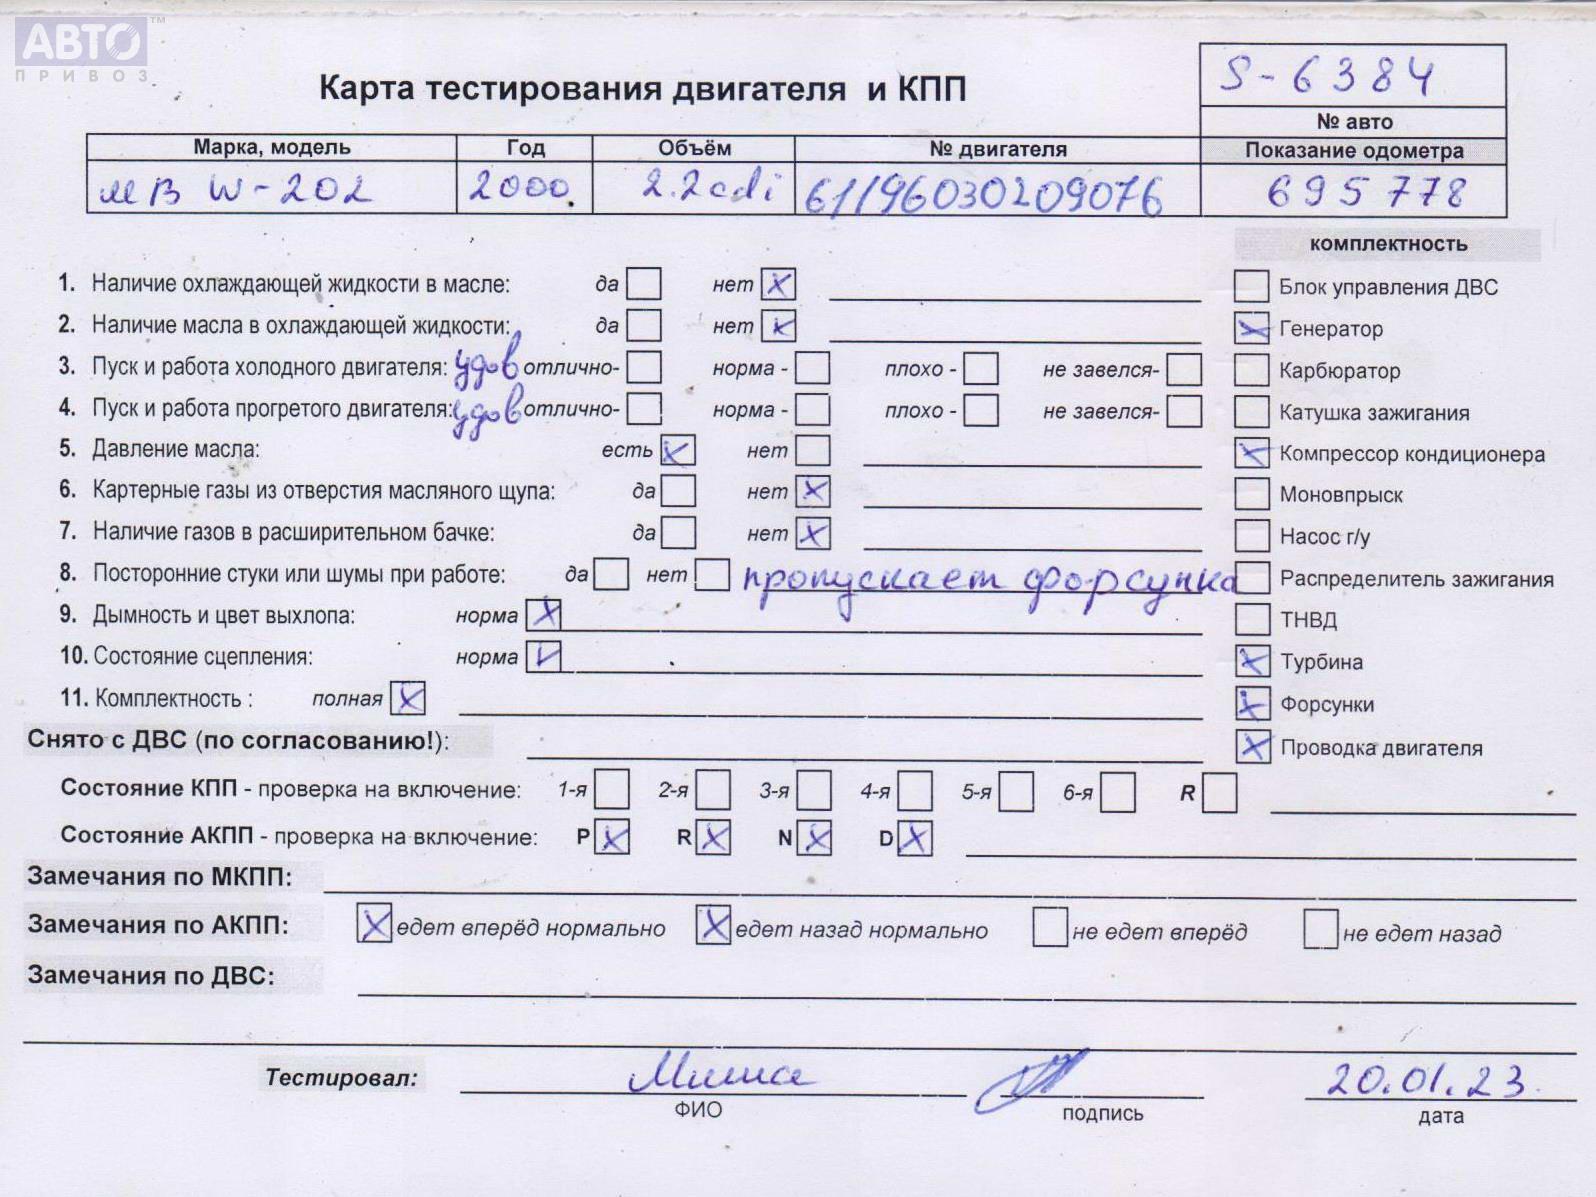 АВТО™
ПРИВОЗ
Карта тестирования двигателя и КПП
S-6384
№ авто
Марка, модель Год Объём № двигателя Показание одометра
МВ W-202 2000. 2.2cdi 61196030209076 695778
комплектность
1. Наличие охлаждающей жидкости в масле: да нет x
Блок управления ДВС
2. Наличие масла в охлаждающей жидкости: да нет x
x Генератор
3. Пуск и работа холодного двигателя: удов отлично- норма - плохо - не завелся-
Карбюратор
4. Пуск и работа прогретого двигателя: удов отлично- норма - плохо - не завелся-
Катушка зажигания
5. Давление масла: есть x нет
x Компрессор кондиционера
6. Картерные газы из отверстия масляного щупа: да нет x
Моновпрыск
7. Наличие газов в расширительном бачке: да нет x
Насос г/у
8. Посторонние стуки или шумы при работе: да нет пропускает форсунка
Распределитель зажигания
9. Дымность и цвет выхлопа: норма x
ТНВД
10. Состояние сцепления: норма v
x Турбина
11. Комплектность : полная x
x Форсунки
Снято с ДВС (по согласованию!):
x Проводка двигателя
Состояние КПП - проверка на включение: 1-я 2-я 3-я 4-я 5-я 6-я R
Состояние АКПП - проверка на включение: P x R x N x D x
Замечания по МКПП:
Замечания по АКПП: x едет вперёд нормально x едет назад нормально не едет вперёд не едет назад
Замечания по ДВС:
Тестировал: Миша 20.01.23.
ФИО подпись дата